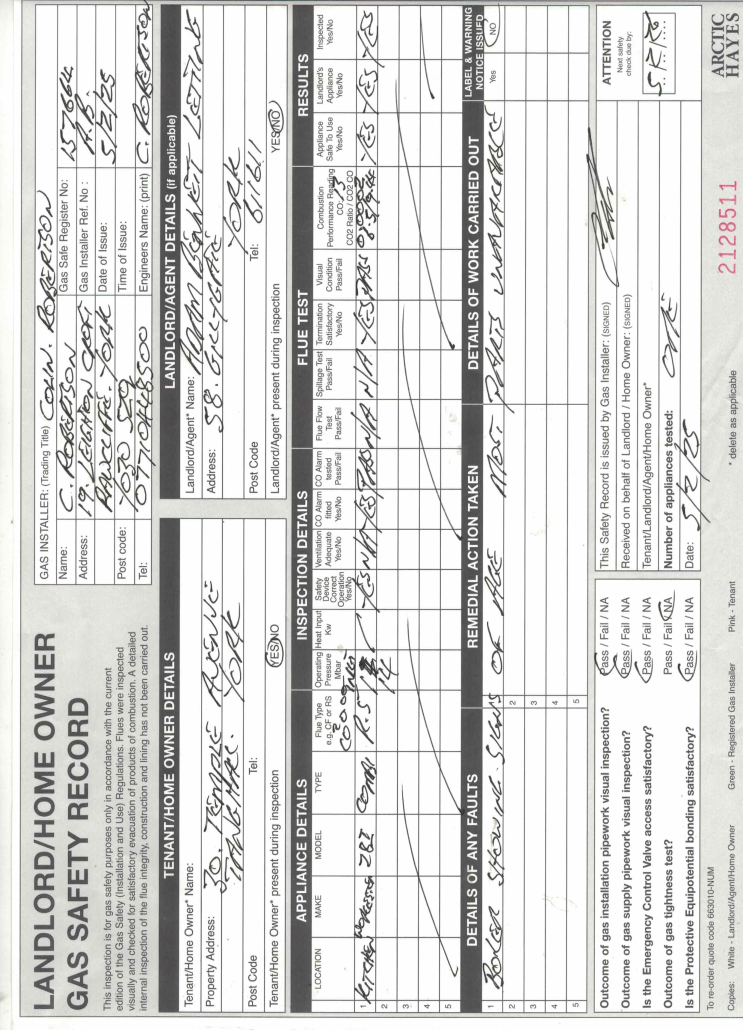 LANDLORD/HOME OWNER
GAS SAFETY RECORD
This inspection is for gas safety purposes only in accordance with the current
edition of the Gas Safety (Installation and Use) Regulations. Flues were inspected
visually and checked for satisfactory evacuation of products of combustion. A detailed
internal inspection of the flue integrity, construction and lining has not been carried out.
GAS INSTALLER: (Trading Title) COLIN. ROBERTSON
Name: C. ROBERTSON Gas Safe Register No: 157664
Address: 19. LEIGHTON CROFT Gas Installer Ref. No : A.B.
RAWCLIFFE. YORK Date of Issue: 5/2/25
Post code: YO30 Time of Issue:
Tel: Engineers Name: (print) C. ROBERTSON
TENANT/HOME OWNER DETAILS
Tenant/Home Owner* Name:
Property Address: 30. TEMPLE AVENUE
TANG HALL. YORK
Post Code Tel:
Tenant/Home Owner* present during inspection YES/NO
LANDLORD/AGENT DETAILS (if applicable)
Landlord/Agent* Name: ADAM BENNETT LETTING
Address: 58. GILLYGATE
YORK
Post Code Tel: 611611
Landlord/Agent* present during inspection YES/NO
APPLIANCE DETAILS
INSPECTION DETAILS
FLUE TEST
RESULTS
LOCATION MAKE MODEL TYPE Flue Type e.g. CF or RS Operating Pressure Mbar Heat Input Kw Safety Device Correct Operation Yes/No Ventilation Adequate Yes/No CO Alarm fitted Yes/No CO Alarm tested Pass/Fail Flue Flow Test Pass/Fail Spillage Test Pass/Fail Termination Satisfactory Yes/No Visual Condition Pass/Fail Combustion Performance Reading CO/ CO2 Ratio / CO2 CO Appliance Safe To Use Yes/No Landlord's Appliance Yes/No Inspected Yes/No
1 KITCHEN 28I COMBI R.S YES N/A YES PASS N/A N/A YES PASS YES YES YES
2
3
4
5
DETAILS OF ANY FAULTS
REMEDIAL ACTION TAKEN
DETAILS OF WORK CARRIED OUT
LABEL & WARNING
NOTICE ISSUED
Yes NO
1 BOILER SHOWING SIGNS OF AGE MOST PARTS UNAVAILABLE
2
3
4
5
Outcome of gas installation pipework visual inspection? Pass / Fail / NA
Outcome of gas supply pipework visual inspection? Pass / Fail / NA
Is the Emergency Control Valve access satisfactory? Pass / Fail / NA
Outcome of gas tightness test? Pass / Fail / NA
Is the Protective Equipotential bonding satisfactory? Pass / Fail / NA
This Safety Record is issued by Gas Installer: (SIGNED)
Received on behalf of Landlord / Home Owner: (SIGNED)
Tenant/Landlord/Agent/Home Owner*
Number of appliances tested: ONE
Date: 5/2/25
ATTENTION
Next safety
check due by:
5/2/26
To re-order quote code 663010-NUM
Copies: White - Landlord/Agent/Home Owner Green - Registered Gas Installer Pink - Tenant * delete as applicable
2128511
ARCTIC
HAYES